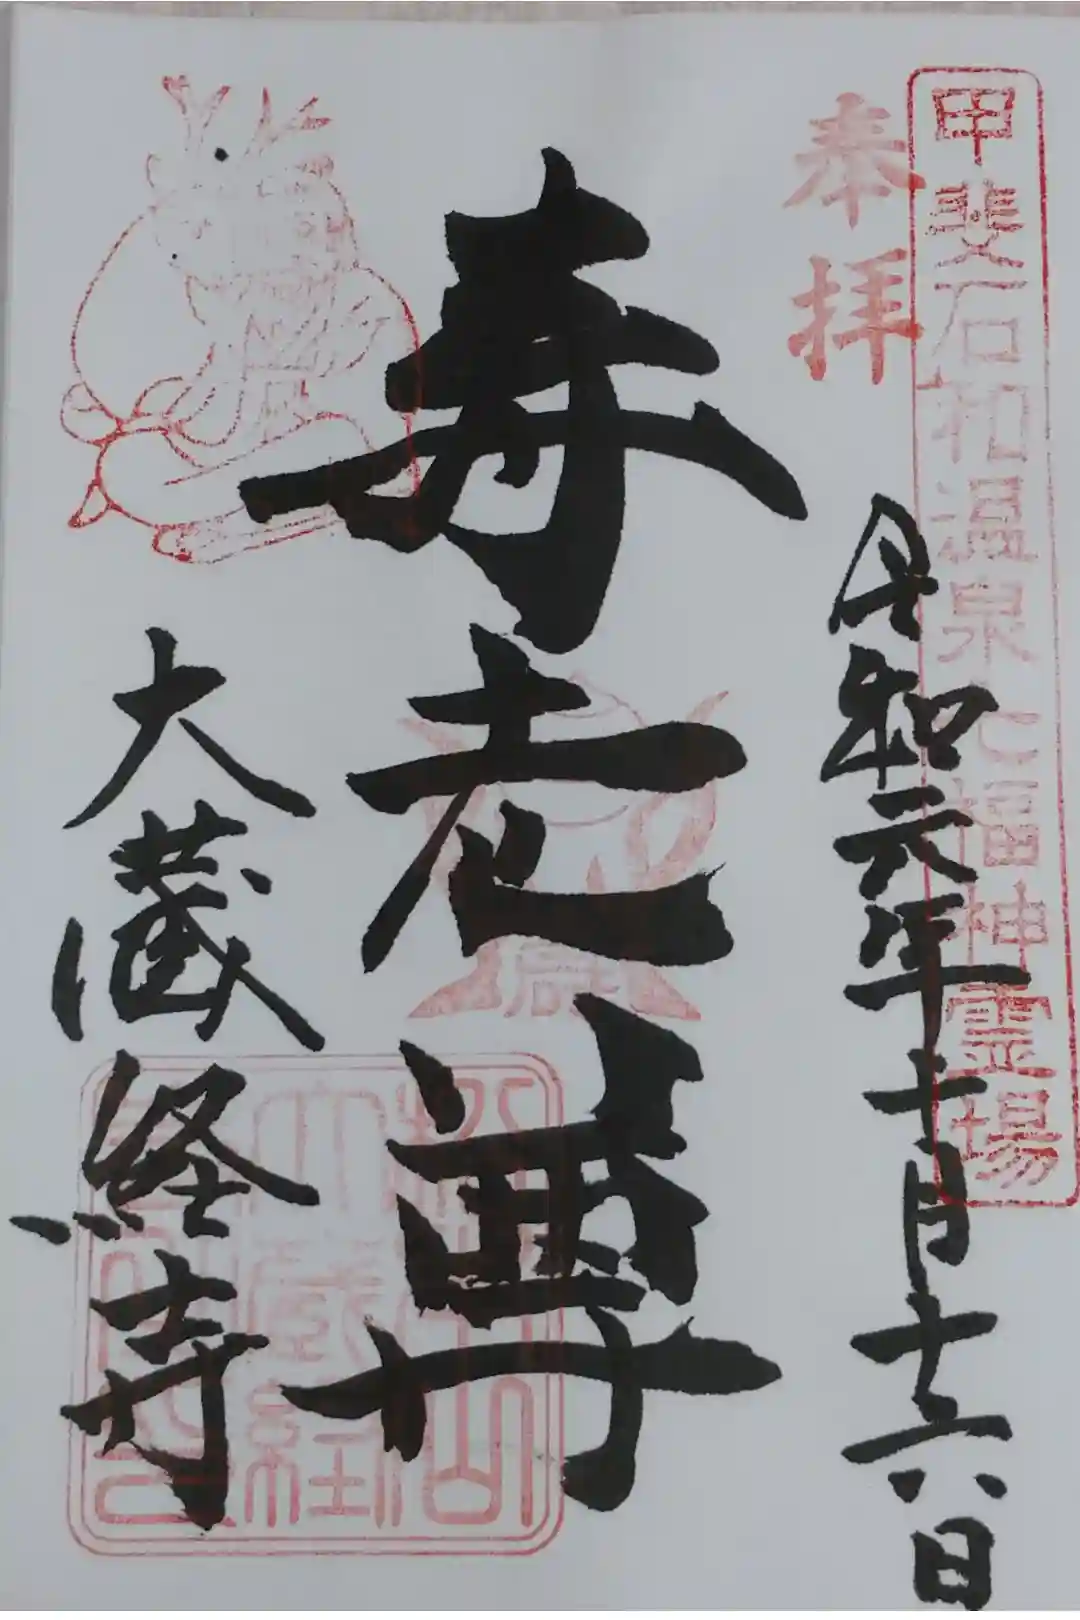 甲斐石和温泉七福神霊場
奉拝
令和元年十月十六日
寿老尊
大蔵経寺